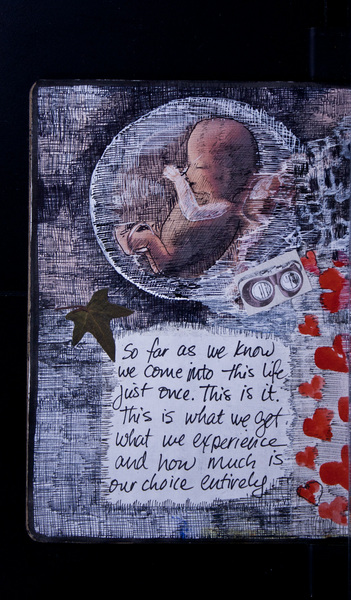 So far as we know
we come into this life
just once. This is it.
This is what we get
what we experience
and how much is
our choice entirely.